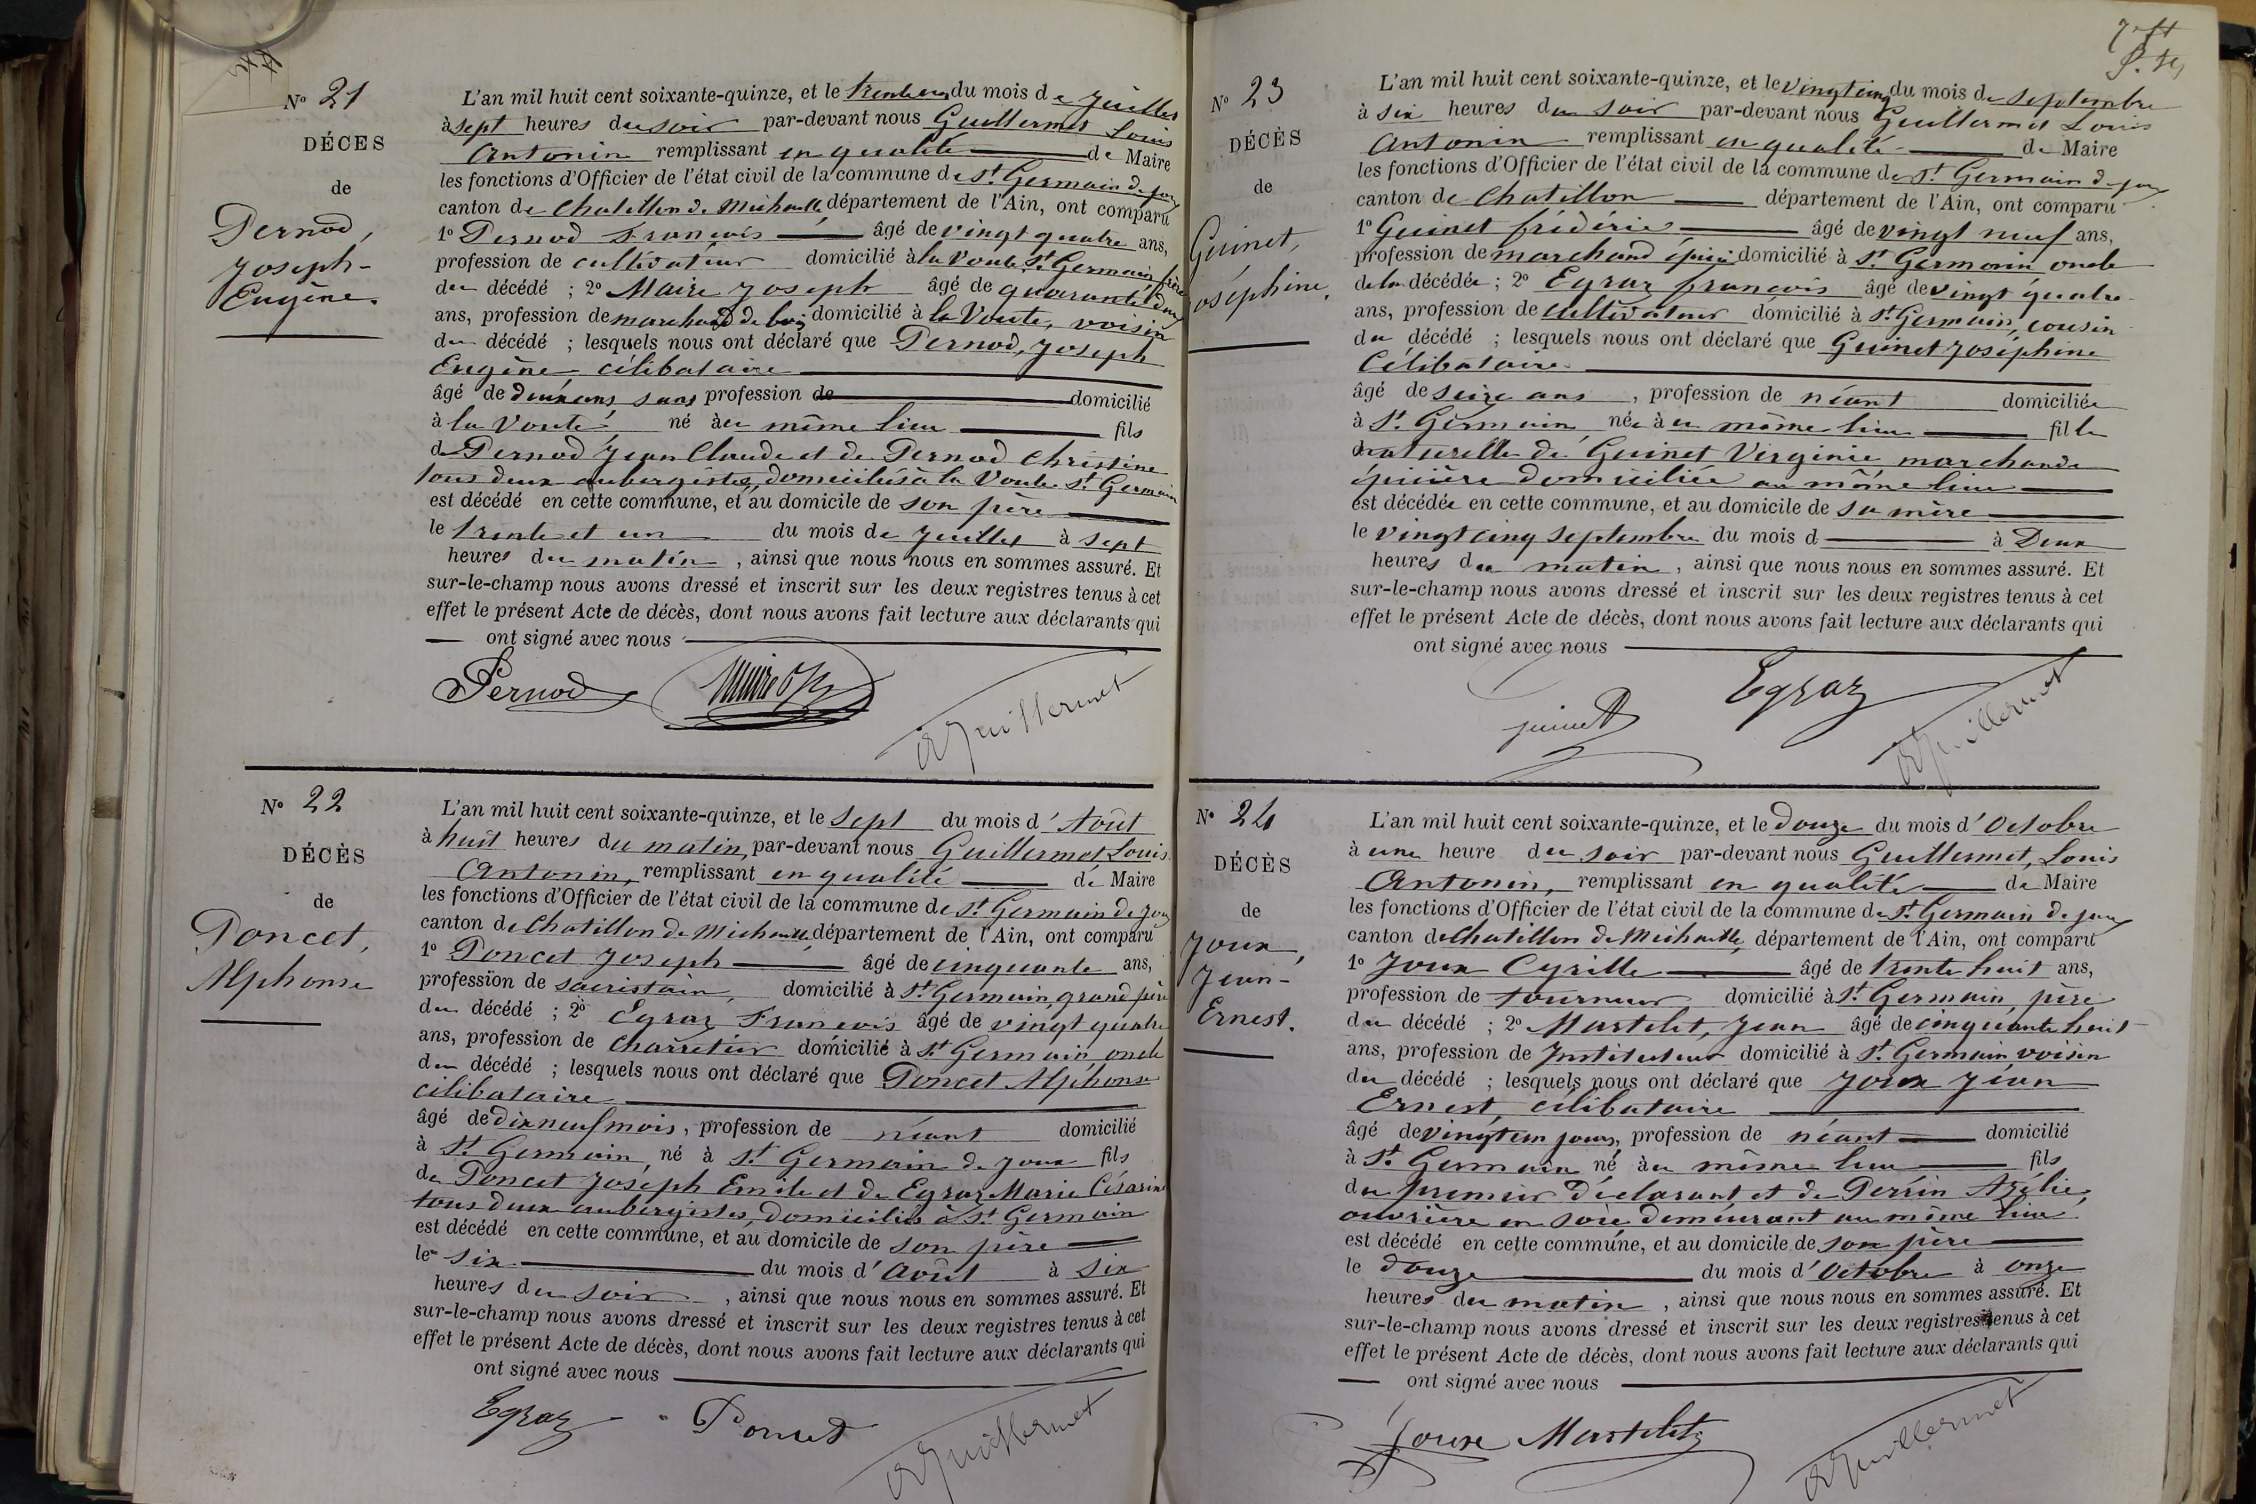 Nº 21
DÉCES
de
Pernod,
Joseph-
Eugène.
L'an mil huit cent soixante-quinze, et le trente un du mois de Juillet
à sept heures du soir par-devant nous Guillermet Louis
Antonin remplissant en qualité de Maire
les fonctions d'Officier de l'état civil de la commune de St Germain de joux
canton de Chatillon de Michaille département de l'Ain, ont comparu
1º Pernod François âgé de vingt quatre ans,
profession de cultivateur domicilié à la Voute St Germain frère
du décédé ; 2º Maire Joseph âgé de quarante deux
ans, profession de marchand de bois domicilié à la Voute, voisin
du décédé ; lesquels nous ont déclaré que Pernod, Joseph
Eugène célibataire
âgé de deux ans sans profession de domicilié
à la Voute né au même lieu fils
de Pernod Jean Claude et de Pernod Christine
tous deux aubergistes, domiciliés à la Voute St Germain
est décédé en cette commune, et au domicile de son père
le trente et un du mois de Juillet à sept
heures du matin, ainsi que nous nous en sommes assuré. Et
sur-le-champ nous avons dressé et inscrit sur les deux registres tenus à cet
effet le présent Acte de décès, dont nous avons fait lecture aux déclarants qui
ont signé avec nous
Pernod Maire Guillermet
Nº 22
DÉCÈS
de
Poncet,
Alphonse
L'an mil huit cent soixante-quinze, et le sept du mois d'Août
à huit heures du matin, par-devant nous Guillermet Louis
Antonin, remplissant en qualité de Maire
les fonctions d'Officier de l'état civil de la commune de St Germain de Joux
canton de Chatillon de Michaille, département de l'Ain, ont comparu
1º Poncet Joseph âgé de cinquante ans,
profession de sacristain, domicilié à St Germain, grand père
du décédé ; 2º Egraz François âgé de vingt quatre
ans, profession de charretier domicilié à St Germain, oncle
du décédé ; lesquels nous ont déclaré que Poncet Alphonse
célibataire
âgé de dix neuf mois, profession de néant domicilié
à St Germain, né à St Germain de Joux fils
de Poncet Joseph Emile et de Egraz Marie Césarine
tous deux aubergistes, domiciliés à St Germain
est décédé en cette commune, et au domicile de son père
le six du mois d'Août à six
heures du soir, ainsi que nous nous en sommes assuré. Et
sur-le-champ nous avons dressé et inscrit sur les deux registres tenus à cet
effet le présent Acte de décès, dont nous avons fait lecture aux déclarants qui
ont signé avec nous
Egraz Poncet Guillermet
Nº 23
DÉCÈS
de
Guinet,
Joséphine.
L'an mil huit cent soixante-quinze, et le vingt cinq du mois de septembre
à six heures du soir par-devant nous Guillermet Louis
Antonin remplissant en qualité de Maire
les fonctions d'Officier de l'état civil de la commune de St Germain de joux
canton de Chatillon département de l'Ain, ont comparu
1º Guinet frédéric âgé de vingt neuf ans,
profession de marchand épicier domicilié à St Germain oncle
de la décédée ; 2º Egraz françois âgé de vingt quatre
ans, profession de cultivateur domicilié à St Germain, cousin
du décédé ; lesquels nous ont déclaré que Guinet Joséphine
Célibataire
âgé de seize ans, profession de néant domiciliée
à St Germain née au même lieu fille
naturelle de Guinet Virginie marchande
épicière domiciliée au même lieu
est décédée en cette commune, et au domicile de sa mère
le vingt cinq septembre du mois d à Deux
heures du matin, ainsi que nous nous en sommes assuré. Et
sur-le-champ nous avons dressé et inscrit sur les deux registres tenus à cet
effet le présent Acte de décès, dont nous avons fait lecture aux déclarants qui
ont signé avec nous
guinet Egraz Guillermet
Nº 24
DÉCÈS
de
Joux,
Jean-
Ernest.
L'an mil huit cent soixante-quinze, et le douze du mois d'Octobre
à une heure du soir par-devant nous Guillermet, Louis
Antonin, remplissant en qualité de Maire
les fonctions d'Officier de l'état civil de la commune de St Germain de joux
canton de Chatillon de Michaille, département de l'Ain, ont comparu
1º Joux Cyrille âgé de trente huit ans,
profession de tourneur domicilié à St Germain père
du décédé ; 2º Martelet, Jean âgé de cinquante huit
ans, profession de Instituteur domicilié à St Germain voisin
du décédé ; lesquels nous ont déclaré que Joux Jean
Ernest, célibataire
âgé de vingt un jours, profession de néant domicilié
à St Germain né au même lieu fils
du premier déclarant et de Perrin Azélie,
ouvrière en soie demeurant au même lieu
est décédé en cette commune, et au domicile de son père
le douze du mois d'Octobre à onze
heures du matin, ainsi que nous nous en sommes assuré. Et
sur-le-champ nous avons dressé et inscrit sur les deux registres tenus à cet
effet le présent Acte de décès, dont nous avons fait lecture aux déclarants qui
ont signé avec nous
Joux Martelet Guillermet